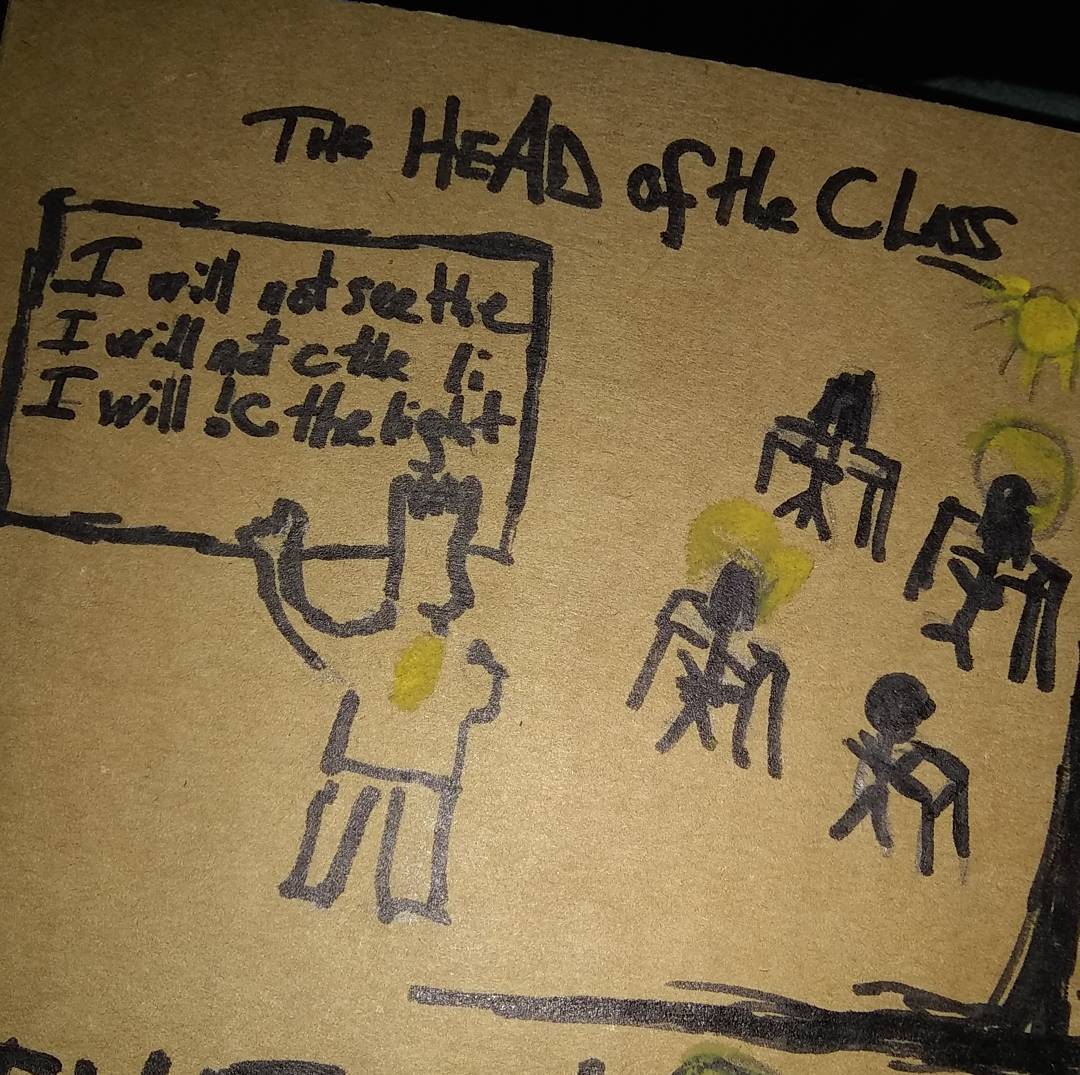 The HEAD of the Class
I will not see the
I will not c the li
I will !c the light